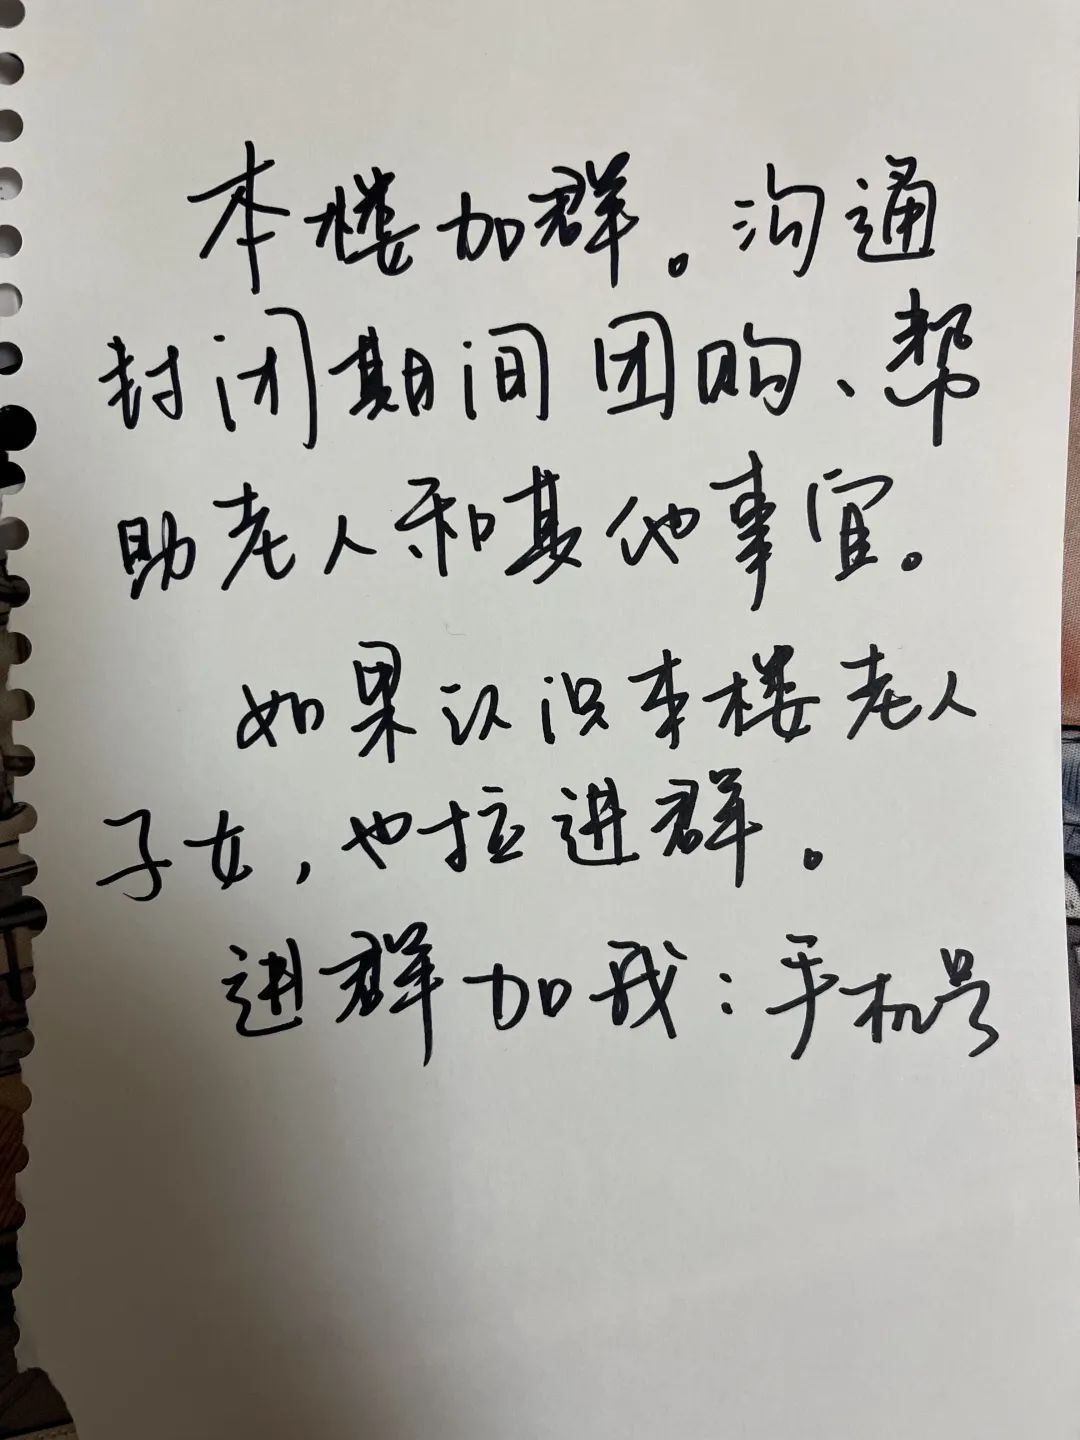 本楼加群。沟通
封闭期间团购、帮
助老人和其他事宜。
如果认识本楼老人
子女,也拉进群。
进群加我:手机号